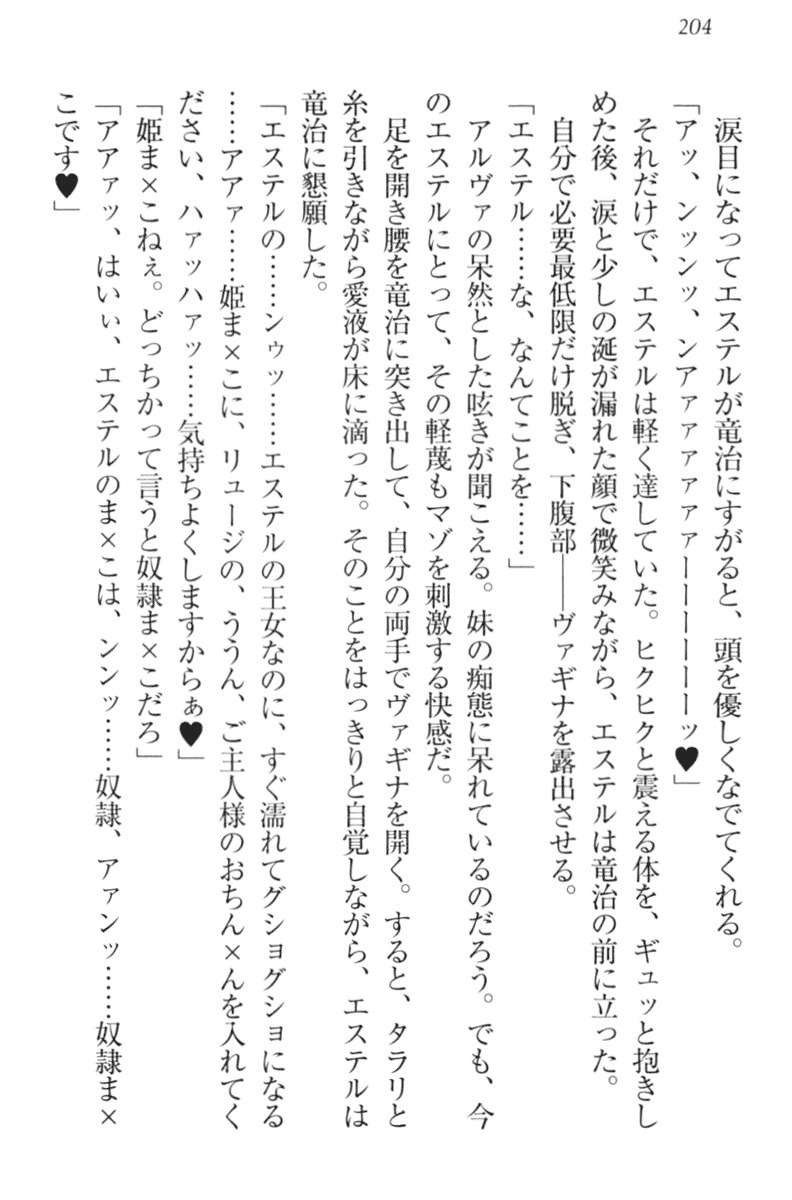 204
涙目になってエステルが竜治にすがると、頭を優しくなでてくれる。
「アッ、ンッンッ、ンアァァァァァーーーーーーッ♥」
それだけで、エステルは軽く達していた。ヒクヒクと震える体を、ギュッと抱きし
めた後、涙と少しの涎が漏れた顔で微笑みながら、エステルは竜治の前に立った。
自分で必要最低限だけ脱ぎ、下腹部――ヴァギナを露出させる。
「エステル……な、なんてことを……」
アルヴァの呆然とした呟きが聞こえる。妹の痴態に呆れているのだろう。でも、今
のエステルにとって、その軽蔑もマゾを刺激する快感だ。
足を開き腰を竜治に突き出して、自分の両手でヴァギナを開く。すると、タラリと
糸を引きながら愛液が床に滴った。そのことをはっきりと自覚しながら、エステルは
竜治に懇願した。
「エステルの……ンゥッ……エステルの王女なのに、すぐ濡れてグショグショになる
……アアァ……姫ま×こに、リュージの、ううん、ご主人様のおちん×んを入れてく
ださい、ハァッハァッ……気持ちよくしますからぁ♥」
「姫ま×こねぇ。どっちかって言うと奴隷ま×こだろ」
「アアァッ、はいぃ、エステルのま×こは、ンンッ……奴隷、アァンッ……奴隷ま×
こです♥」